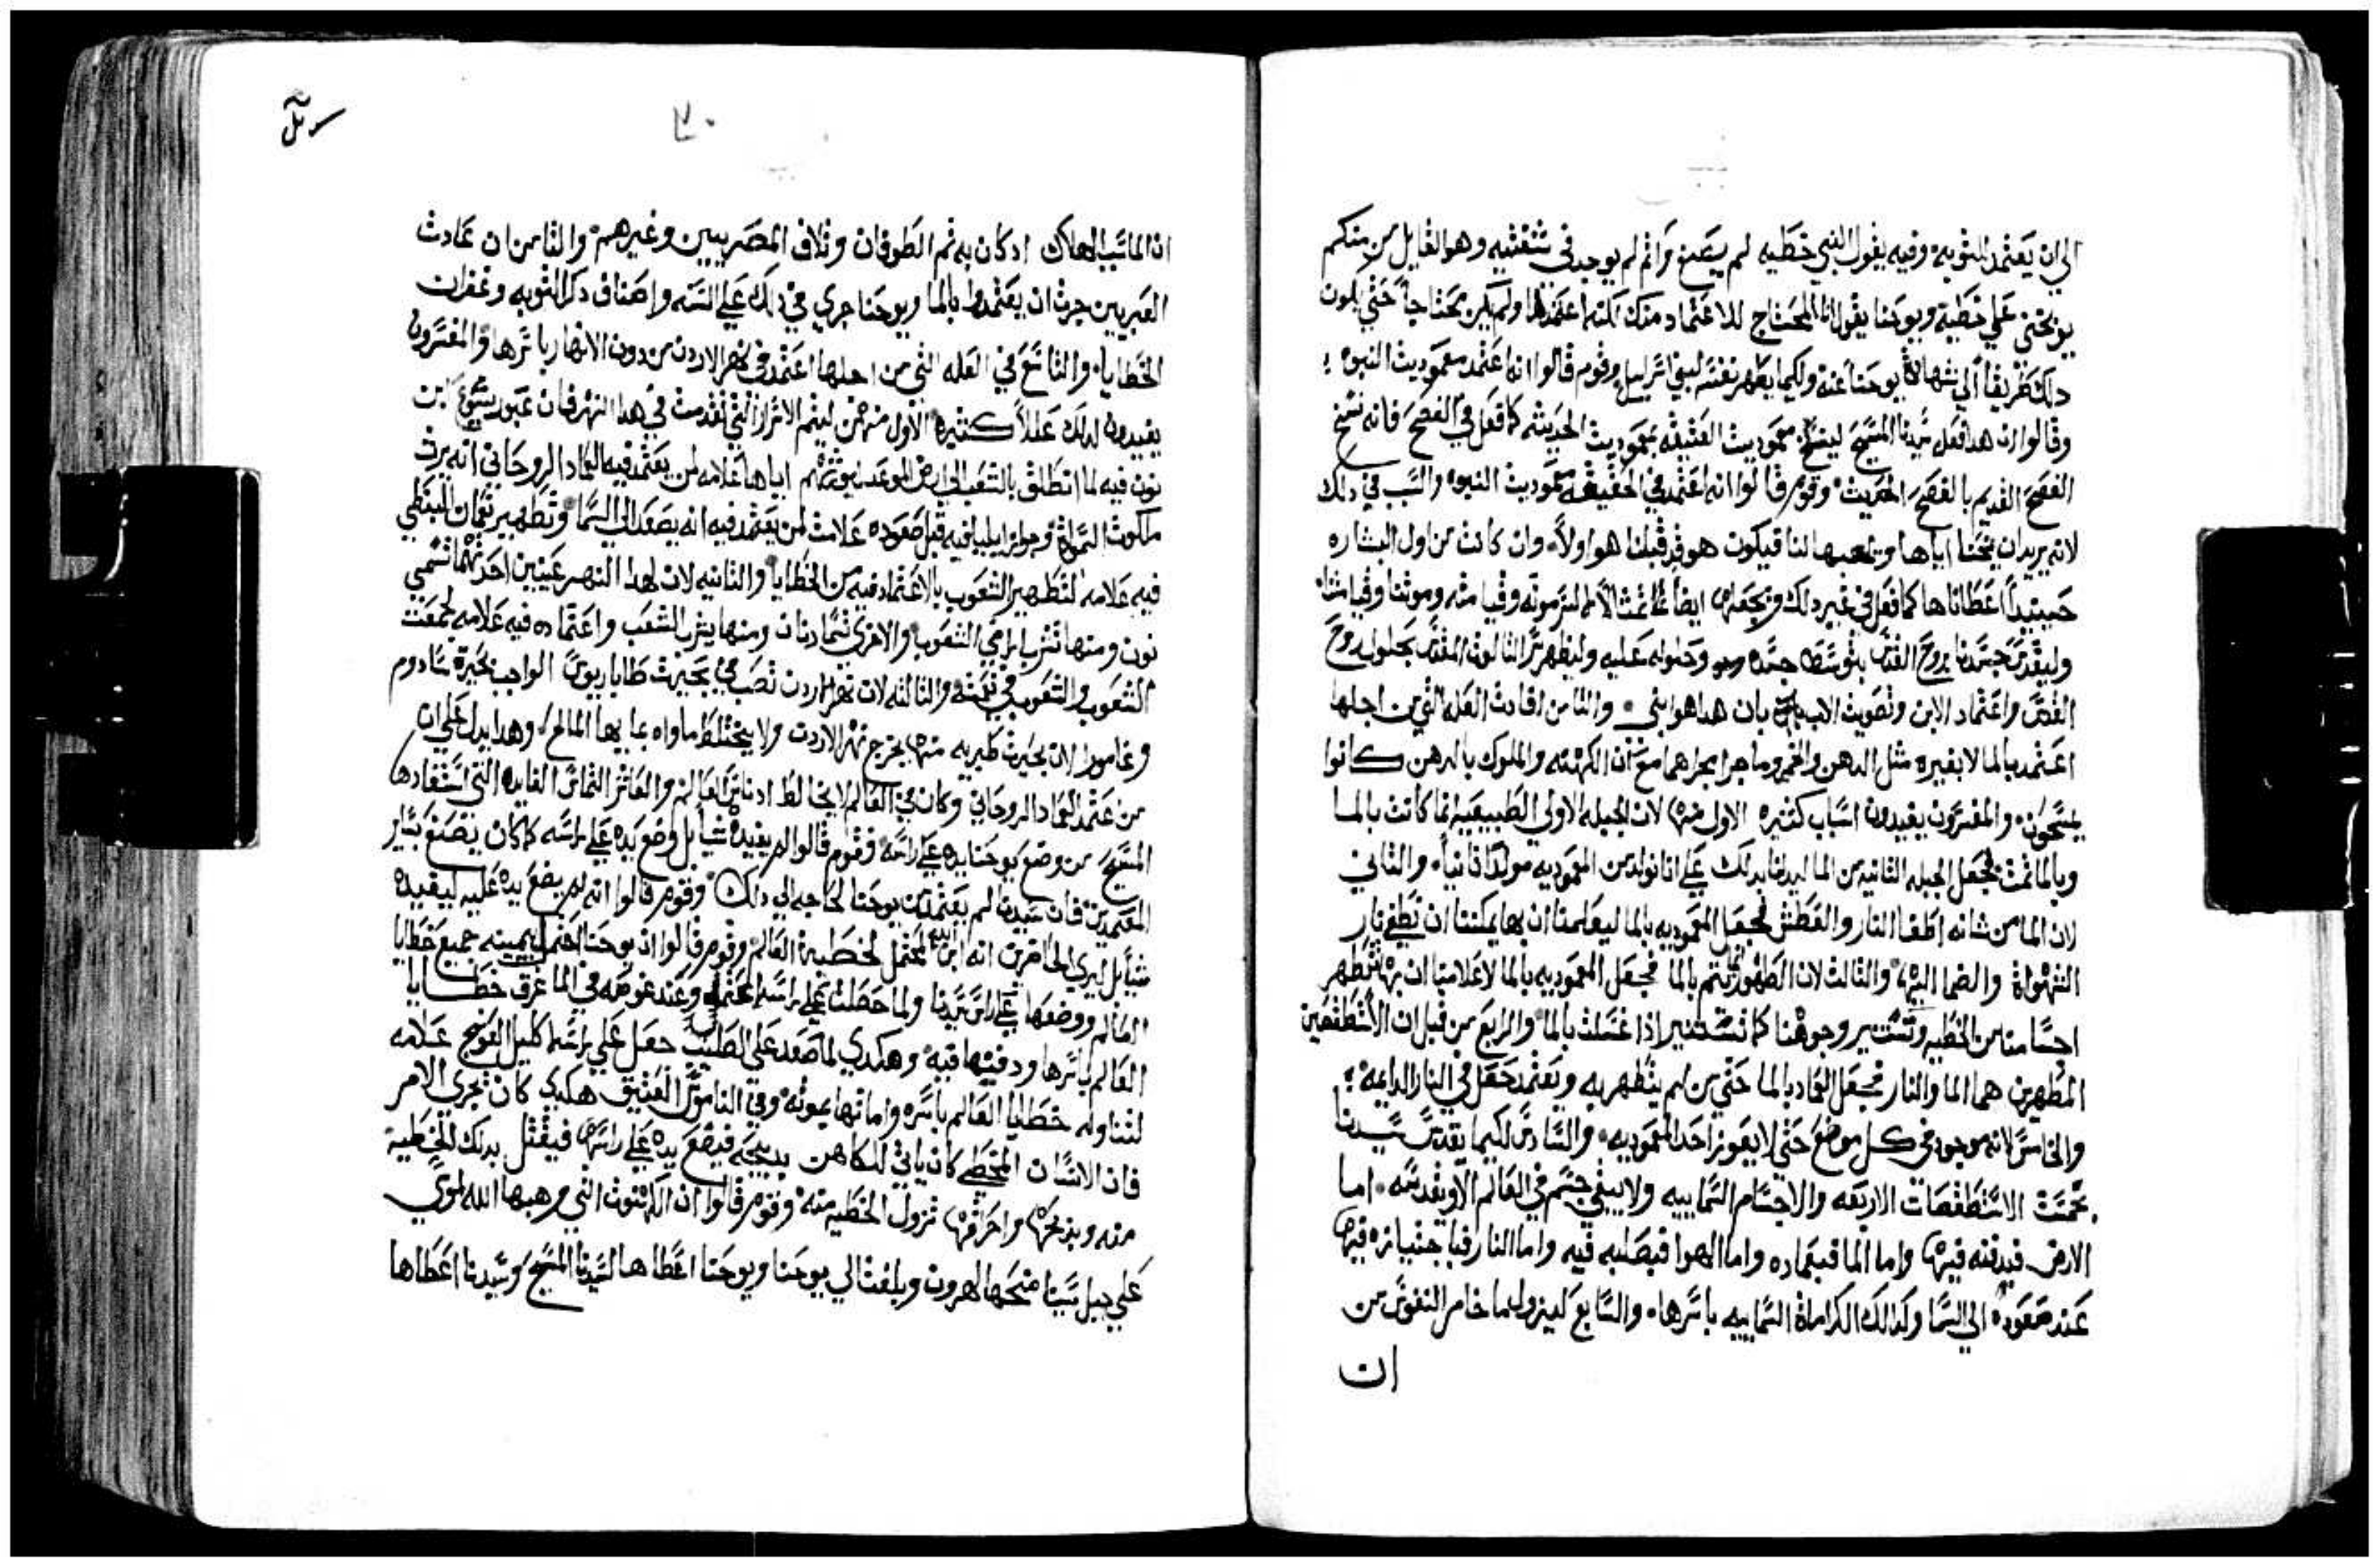 الي ان يعتمد للتوبه وفيه يقول النبي خطيه لم يصنع واثم لم يوجد في شفتيه وهو القايل من منكم
يوبخني علي خطية ويوحنا يقول انا المحتاج للاعتماد منك لكنه اعتمد ولم يكن محتاجا حتي يكون
دلك طريقا الي شهادة يوحنا عنه ولكيما يظهر نفسه لبني اسراييل وقوم قالوا انه اعتمد معموديت التبوه
وقالوا ان هدا فعل سيدنا المسيح لينسخ معموديت العتيقه بمعموديت الحديثه كما فعل في الفصح فانه نسخ
الفصح القديم بالفصح الحديث وقوم قالوا انه اعتمد في الحقيقه معموديت البنوه والسبب في دلك
لانه يريد ان يمنحنا اياها فيكون هو قد قبلنا هو اولا وان كانت من اول البشاره
حينيدا اعطاناها كما فعل في غير دلك ايضا لسر موته وقيامته وموتنا وقيامتنا
وليقدس جسدنا بروح القدس بتوسط جسده وحلوله عليه وليظهر سر الثالوت المقدس بحلول روح
القدس واعتماد الابن وتصويت الاب بان هدا هو ابني والثامن افادت العله التي من اجلها
اعتمد بالما لا بغيره مثل الدهن والخمر وما جرا مجراهما مع ان الكهنه والملوك بالدهن كانوا
يمسحون والمفسرون يفيدون اسباب كثيره الاول منها لان الجبله الاولي الطبيعيه انما كانت بالما
وبالما تمت فجعل الجبله الثانيه من الما ليدلنا بدلك علي انا نولد من المعموديه مولدا ثانيا والثاني
لان الما من شانه اطفا النار والعطش فجعل المعموديه بالما ليعلمنا ان بها يمكننا ان نطفي نار
الشهواة والضما اليها والثالث لان الطهور تتم بالما فجعل المعموديه بالما لاعلامنا ان بها تتطهر
اجسامنا من الخطيه وتستنير وجوهنا كما تستنير ادا غسلت بالما والرابع من قبل ان الاسطقصين
المطهرين هما الما والنار فجعل العماد بالما حتي من لم يتطهر به ويعتمد حصل في النار الدايمه
والخامس لانه موجود في كل موضع حتي لا يعوز احد المعموديه والسادس لكيما يقدس سيدنا
بجسمه الاسطقصات الاربعه والاجسام السماييه ولا يبقي جسم في العالم الا ويقدسه اما
الارض فبدفنه فيها واما الما فبعماده واما الهوا فبصلبه فيه واما النار فباجتيازه فيها
عند صعوده الي السما وكدلك الكراماة السماييه باسرها والسابع ليزول ما خامر النفوس من
ان
٧٠
ان الما سبب الهلاك اد كان به تم الطوفان وتلاف المصريين وغيرهم والثامن ان عادت
العبريين جرت ان يعتمدوا بالما ويوحنا جري في دلك علي السنه واضاف دكر التوبه وغفران
الخطايا والتاسع في العله التي من اجلها اعتمد في نهر الاردن من دون الانهار باسرها والمفسرون
يفيدون لدلك عللا كثيره الاول منهن ليتم الاسرار التي تقدمت في هدا النهر فان عبور يشوع ابن
نون فيه لما انطلق بالشعب الي ارض الموعد ليورثهم اياها علامه لمن يعتمد فيه العماد الروحاني انه يرث
ملكوت السمواة وجواز ايليا فيه قبل صعوده علامت لمن يعتمد فيه انه يصعد الي السما وتطهير نعمان النبطي
فيه علامه لتطهير الشعوب بالاعتماد فيه من الخطايا والثانيه لان لهدا النهر عينين احدتهما تسمي
نون ومنها تشرب الشعوب والاخري تسما دنان ومنها يشرب الشعب واعتماده فيه علامه لجمعه
الشعوب والشعوب في والثالثه لان نهر الاردن نصب في بحيرت طاباريوس الواجب بحيرة سادوم
وغامورا لان بحيرت طبريه منها يخرج نهر الاردن ولا يختلط ماوه بمايها المالح وهدا يدل علي ان
من عتمد العماد الروحاني وكان في العالم لا يخالط ادناس العالم والعاشر التماس الفايده التي استفادها
المسيح من وضع يوحنا يده علي راسه فقوم قالوا لم يفيده شيا بل وضع يده علي راسه كما كان يصنع بساير
المعتمدين فان سيدنا لم يعتمد من يوحنا لحاجه الي دلك وقوم قالوا انه لم يضع يده عليه ليفيده
شيا بل ليري الحاضرين انه ابن الله المحتمل لخطية العالم وقوم قالوا ان يوحنا احتمل بيمينه جميع خطايا
العالم ووضعها علي راس سيدنا ولما حصلت علي راسه وعند غوصه في الما غرق خطايا
العالم باسرها ودفنها فيه وهكدي لما صعد علي الصليب جعل علي راسه اكليل العوسج علامه
لتناوله خطايا العالم باسره واماتها بموته وفي الناموس العتيق هكدي كان يجري الامر
فان الانسان المخطي كان ياتي للكاهن بدبيحه فيضع يده علي راسها فيقتل بدلك الخطيه
منه وبدبحها واحراقها تزول الخطيه منه وقوم قالوا ان الكهنوت التي وهبها الله لموسي
علي جبل سينا منحها لهرون وبلغت الي يوحنا ويوحنا اعطاها لسيدنا المسيح وسيدنا اعطاها